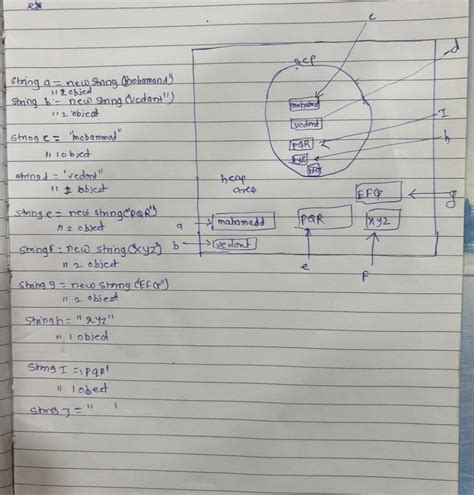 ex
String a = new string ("mohamand")
"2 object
String b = new string ("vedant")
"2 object
String c = "mohammad"
"1 object
string d = 'vedant"
" 1 object
string e = new string("PQR")
"2 object
String f = new string ("xyz")
"2 object
String g = new string ("EFG")
"2 object
String h = "xyz"
"1 object
String I = "PQR'
"1 object
String J = " '
c
d
scp
mohamad
vedant
PQR
I
xyz
h
EFG
heap
area
EFG
g
a
mahamadd
PQR
xyz
b
vedant
e
f